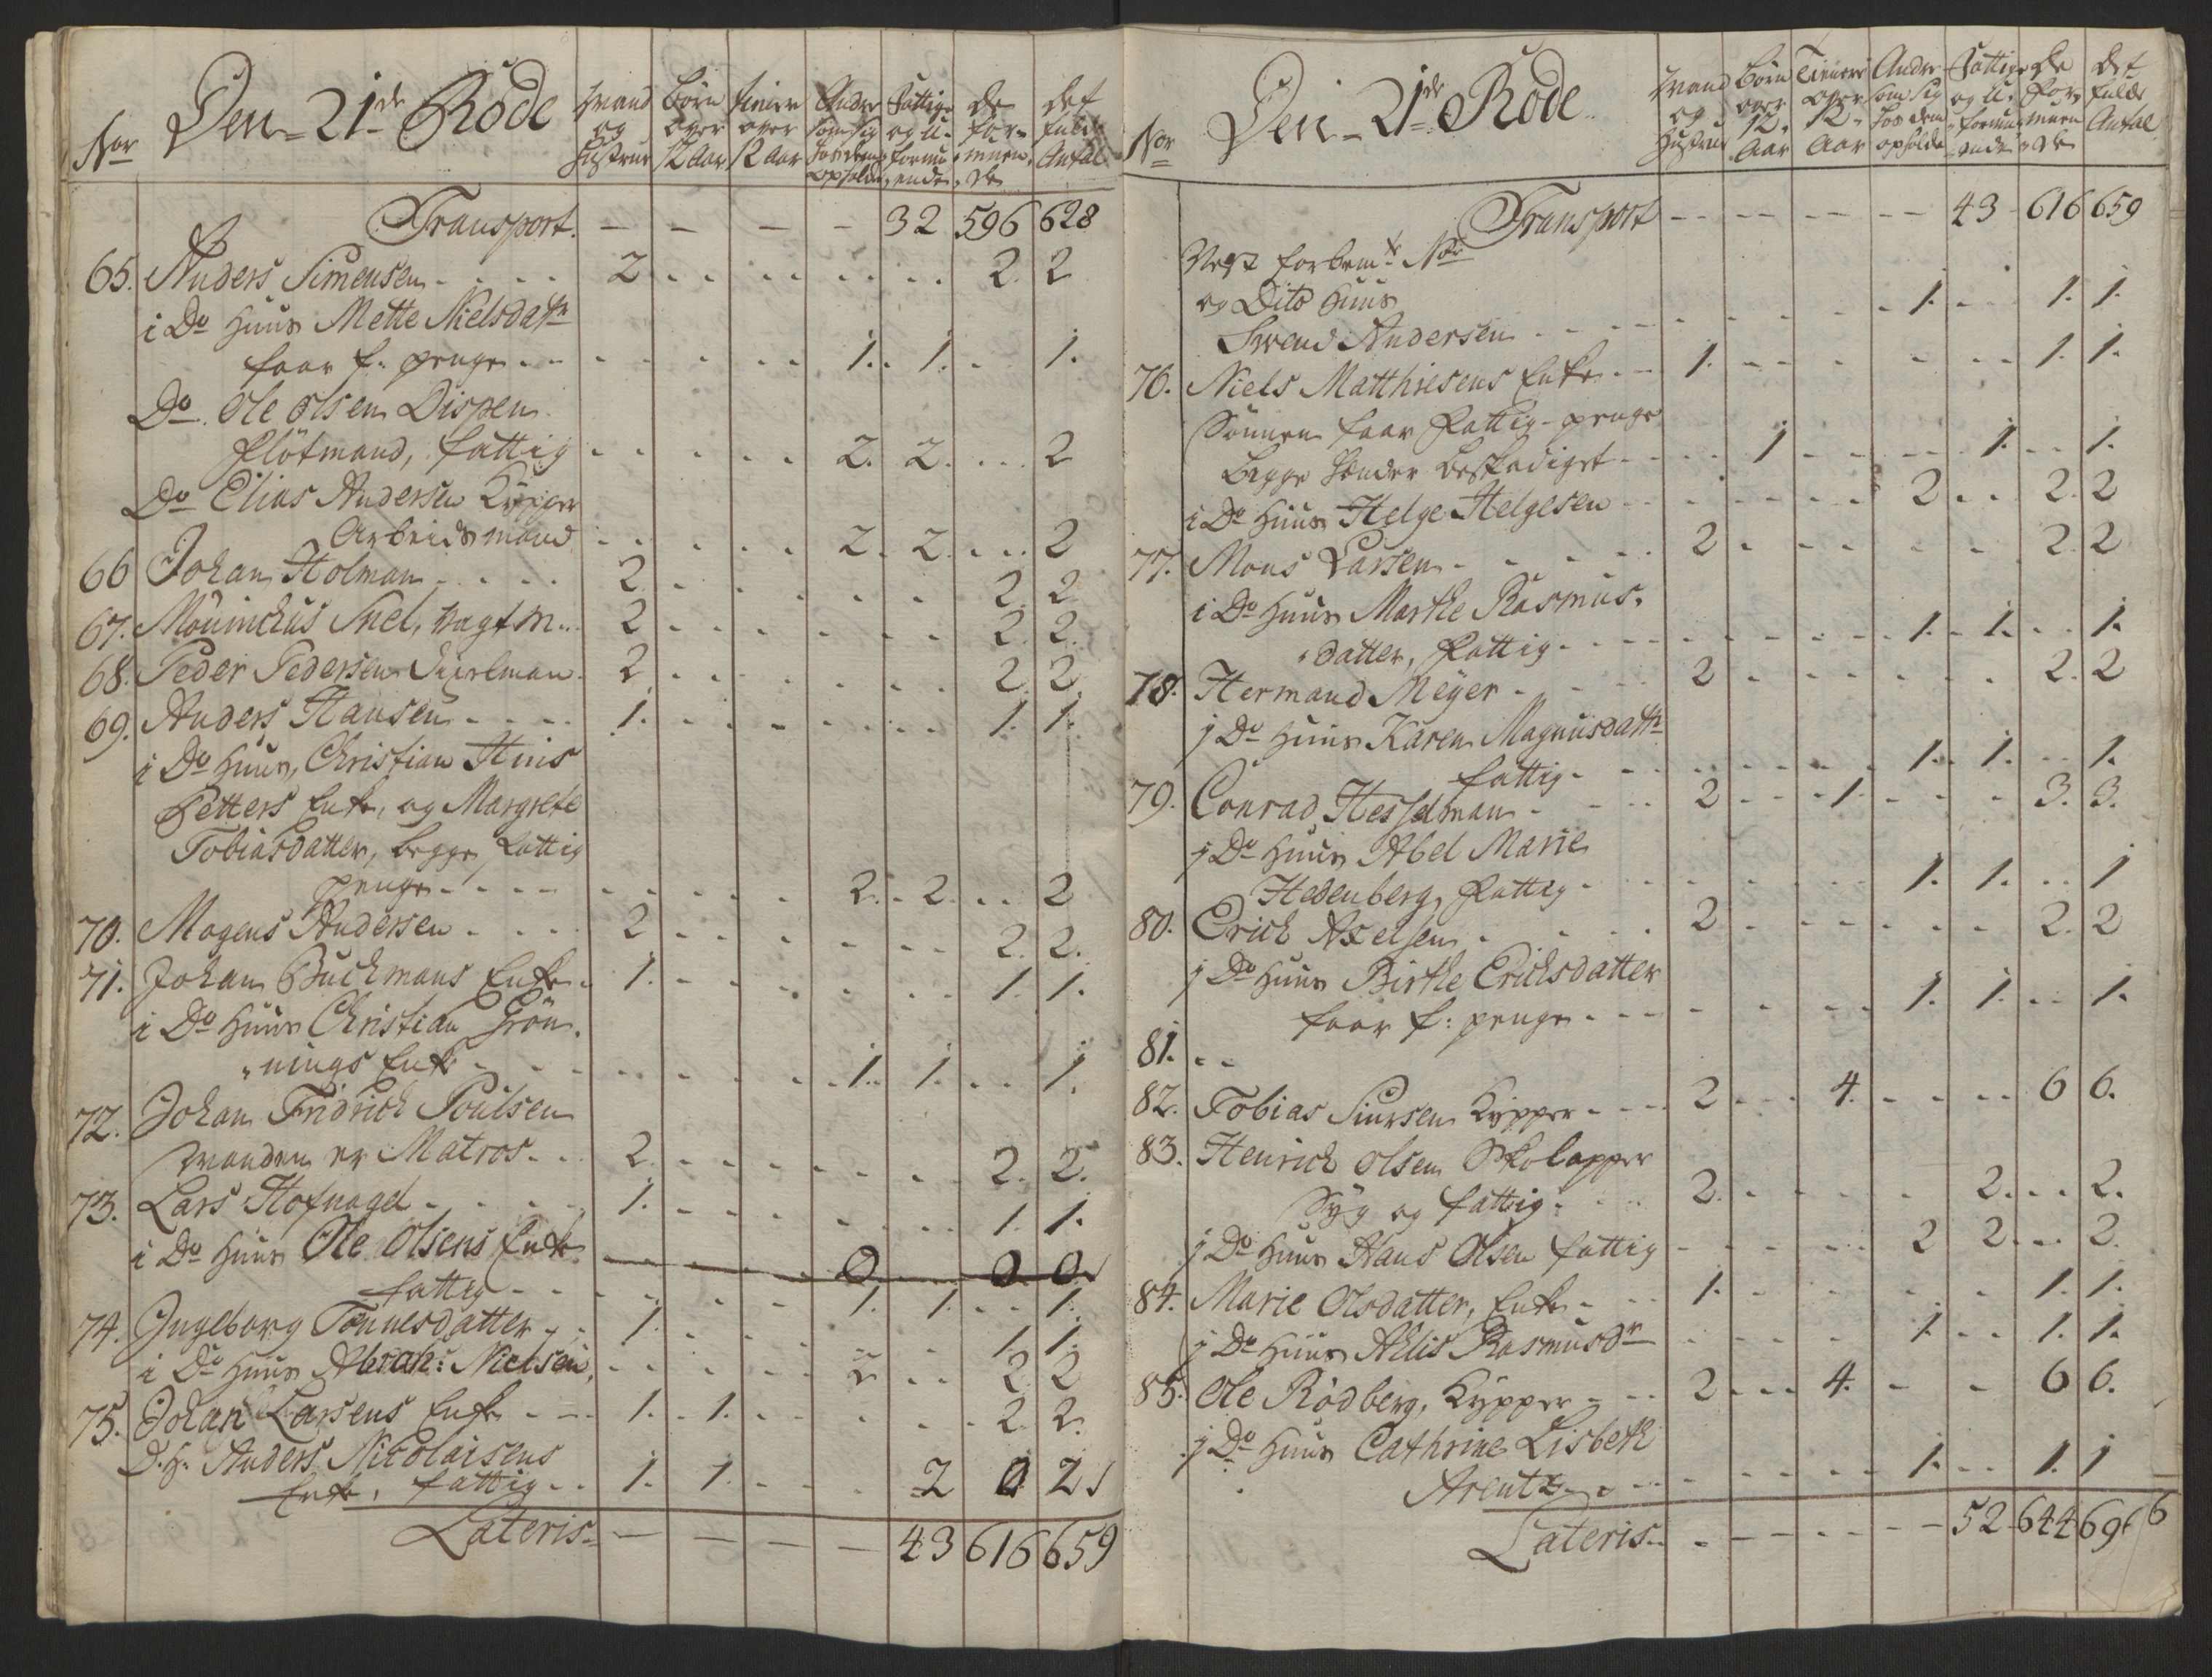 Nor Den 21de Rode Mand og Hustrue Börn over 12 Aar Tiener over 12 Aar Andre som sig hos dem opholde Fattige og U-formuende De Formuende Det fulde Antal
Transport. - - - - 32 596 628
65. Anders Simensen 2 2. 2
i Do Huus Mette Nielsdattr
faar f. penge 1. 1. 1.
Do Ole Olsen Dispen
Flötmand, fattig 2. 2. 2
Do Elias Andersen Kypper
Arbeidsmand 2. 2. 2
66 Johan Holman 2. 2. 2.
67. Mouinchus Snel, Vagtm. 2 2. 2.
68. Peder Pedersen 2 2. 2.
69. Anders Hansen 1. 1. 1.
i Do Huus, Christian Hius
Petters Enke, og Margrete
Tobiasdatter, begge Fattig
penge 2. 2. 2
70. Mogens Andersen 2 2. 2.
71. Johan Buchmans Enke 1. 1. 1.
i Do Huus Christian Grön-
nings Enke 1. 1. 1.
72. Johan Fridrich Poulsen
Manden er Matros 2. 2. 2.
73. Lars Hofnagel 1. 1. 1.
i Do Huus Ole Olsens Enke 0 0 0
fattig 1. 1. 1.
74. Ingeborg Tönnesdatter 1. 1. 1.
i Do Huus Abrah: Nielsen 2 2. 2
75. Johan Larsens Enke 1. 1. 2. 2.
D. H. Anders Nicolaisens
Enke, fattig 1. 1. 2 0 2
Lateris - - - - 43 616 659
Nor Den 21de Rode Mand og Hustrue Börn over 12 Aar Tienere over 12 Aar Andre som sig hos dem opholde Fattige og U-formuende De Formuende Det fulde Antal
Transport - - - - 43 616 659
Nest forbemte Nor
og Dito Huus
Svend Andersen 1. 1. 1.
76. Niels Matthiesens Enke 1. 1. 1.
Sönnen faar Fattig-penge
begge Hænder beskadiget 1 1. 1.
i Do Huus Helge Helgesen 2 2. 2
77. Mons Larsen 2 2. 2
i Do Huus Marthe Rasmus-
datter, Fattig 1. 1. 1.
78. Hermand Meyer 2 2. 2
j Do Huus Karen Magnusdattr
fattig 1. 1. 1.
79. Conrad Hesselman 2 1. 3. 3.
j Do Huus Abel Marie
Hedenberg, Fattig 1. 1. 1
80. Erich Axelsen 2 2. 2
j Do Huus Birthe Erichsdatter
faar f: penge 1. 1. 1.
81. - -
82. Tobias Siursen Kypper 2 4. 6 6.
83. Henrich Olsen Skolapper
Syg og fattig 2. 2. 2.
j Do Huus Hans Olsen fattig 2 2. 2.
84. Marie Olsdatter, Enke 1. 1. 1.
j Do Huus Ahlis Rasmusdr 1. 1. 1.
85. Ole Rödberg, Kypper 2 4. 6 6.
j Do Huus Cathrine Lisbeth
Arentz 1. 1. 1
Lateris - - - - 52 644 696